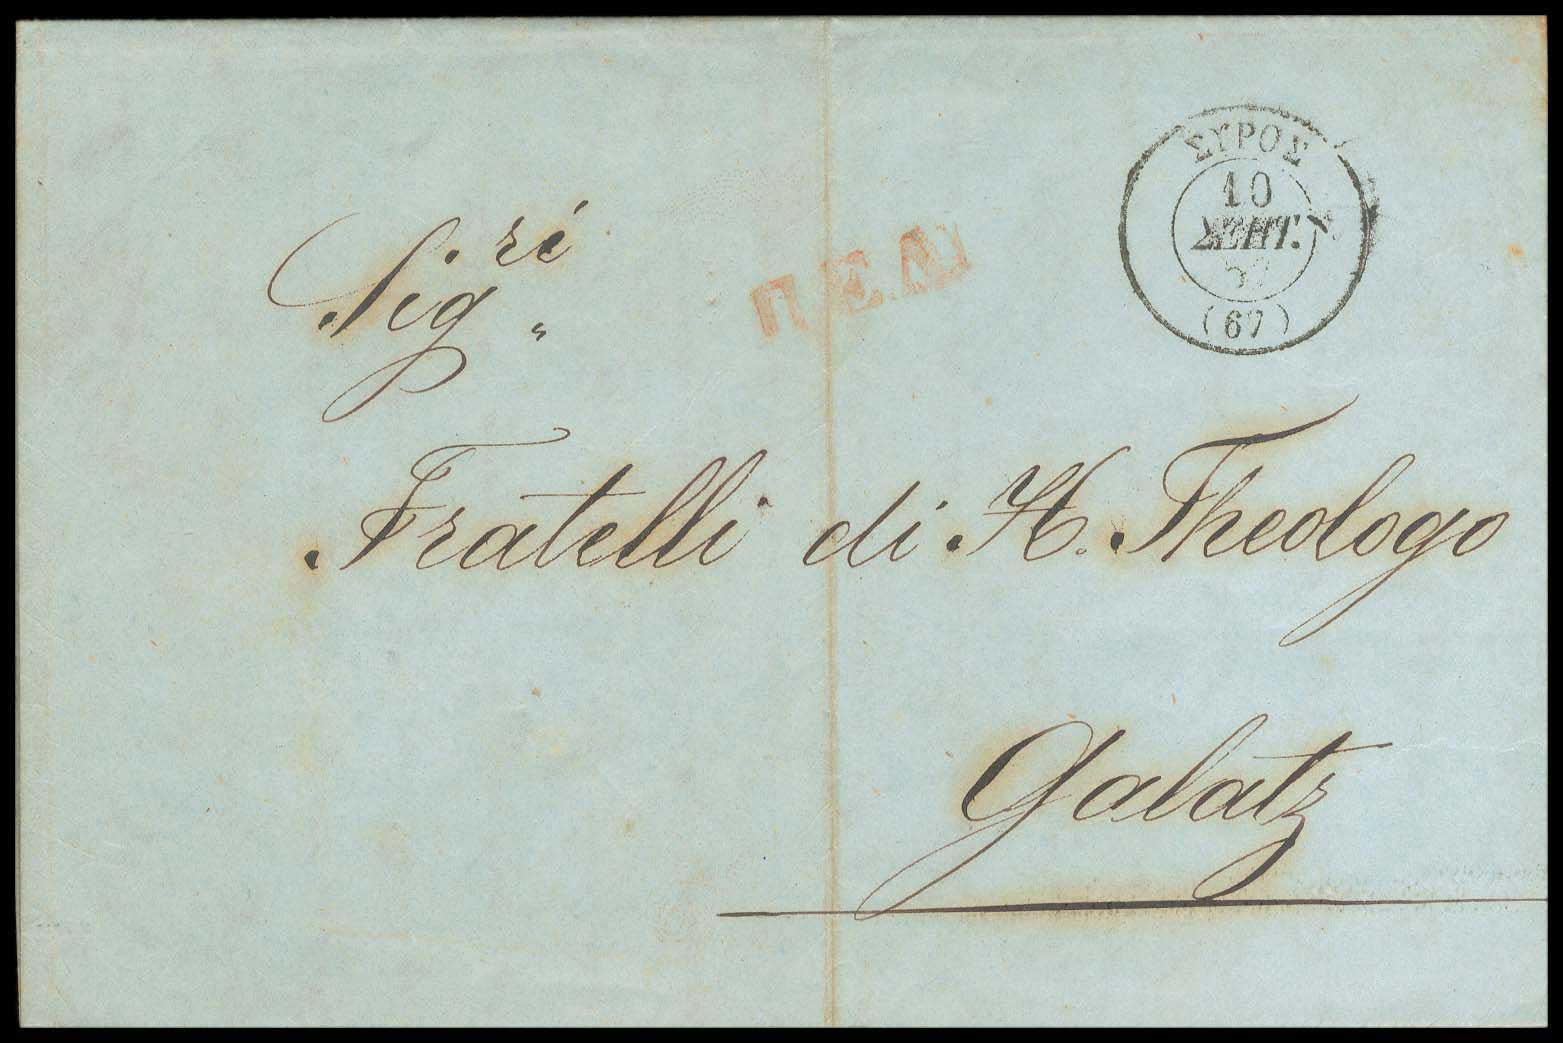 ΣΥΡΟΣ
10
ΣΕΠΤ.
(67)
Π.Ε.Δ
Sig.ri
Fratelli di H. Theologo
Galatz